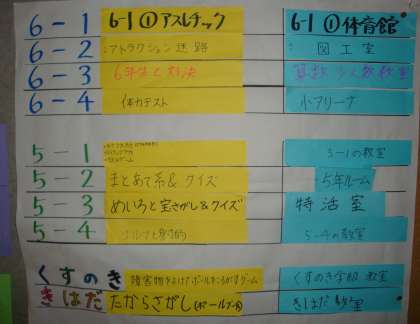 6-1 6-1①アスレチック 6-1①体育館
6-2 :アトラクション迷路 :図工室
6-3 6年生と対決 算数少人数教室
6-4 体力テスト 小アリーナ
5-1 5-1の教室
5-2 まとあて系&クイズ 5年ルーム
5-3 めいろと宝さがし&クイズ 特活室
5-4 5-4の教室
くすのき 障害物をよけてボールをころがすゲーム くすのき学級 教室
きはだ たからさがし(ボールプール) きはだ教室